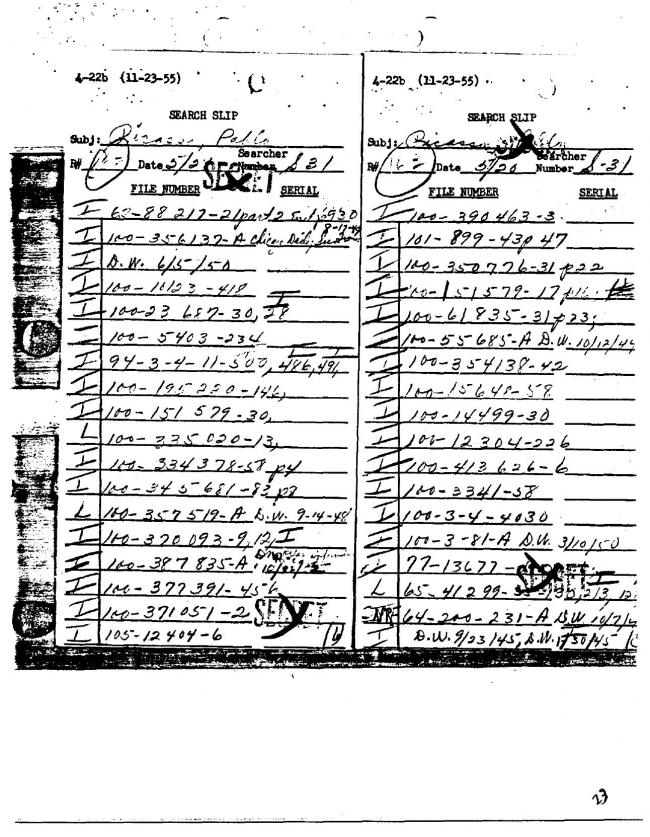 4-22b (11-23-55)
SEARCH SLIP
Subj: Picasso, Pablo
Searcher
R# Date 5/2 Number S 31
SECRET
FILE NUMBER SERIAL
I 100-356137-A
I D.W. 6/5/50
I 100-1023-418
I 100-23687-30, 28
I 100-5403-234
I 94-3-4-11-500, 486, 491
I 100-195220-146,
I 100-151579-30,
L 100-335020-13,
I 100-334378-58 p4
I 100-345681-83 p8
L 100-357519-A D.W. 9-14-48
I 100-370093-9, 12, I
I 100-387835-A
I 100-377391-456
I 100-371051-2 SECRET
I 105-12404-6
4-22b (11-23-55)
SEARCH SLIP
Subj: Picasso, Pablo
Searcher
R# 163 Date 5/20 Number S-31
FILE NUMBER SERIAL
I 100-390463-3
I 101-899-43p47
I 100-350776-31 p22
I 100-151579-17
I 100-61835-31 p23;
I 100-55685-A D.W. 10/12/4
I 100-354138-42
I 100-15648-58
I 100-14499-30
I 100-12304-226
I 100-413626-6
I 100-3341-58
I 100-3-4-4030
I 100-3-81-A D.W. 3/10/50
77-13677- SECRET I
L 65-41299-
NR 64-200-231-A D.W. 10/7/4
I D.W. 9/23/45, D.W. 1/30/45
23